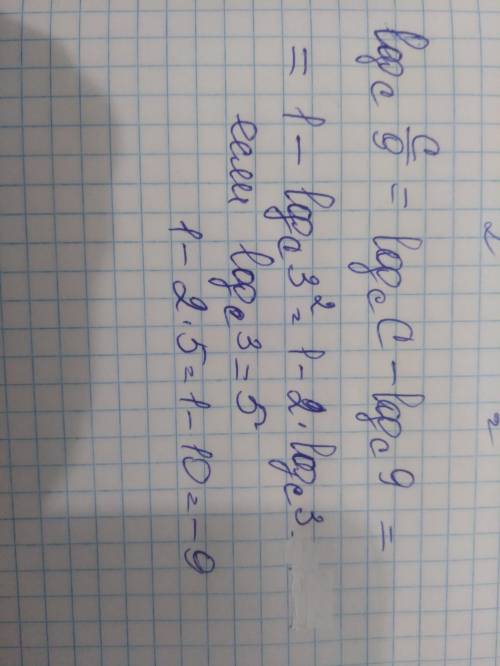 log_c c/9 = log_c c - log_c 9 =
= 1 - log_c 3² = 1 - 2 · log_c 3.
если log_c 3 = 5
1 - 2 · 5 = 1 - 10 = - 9